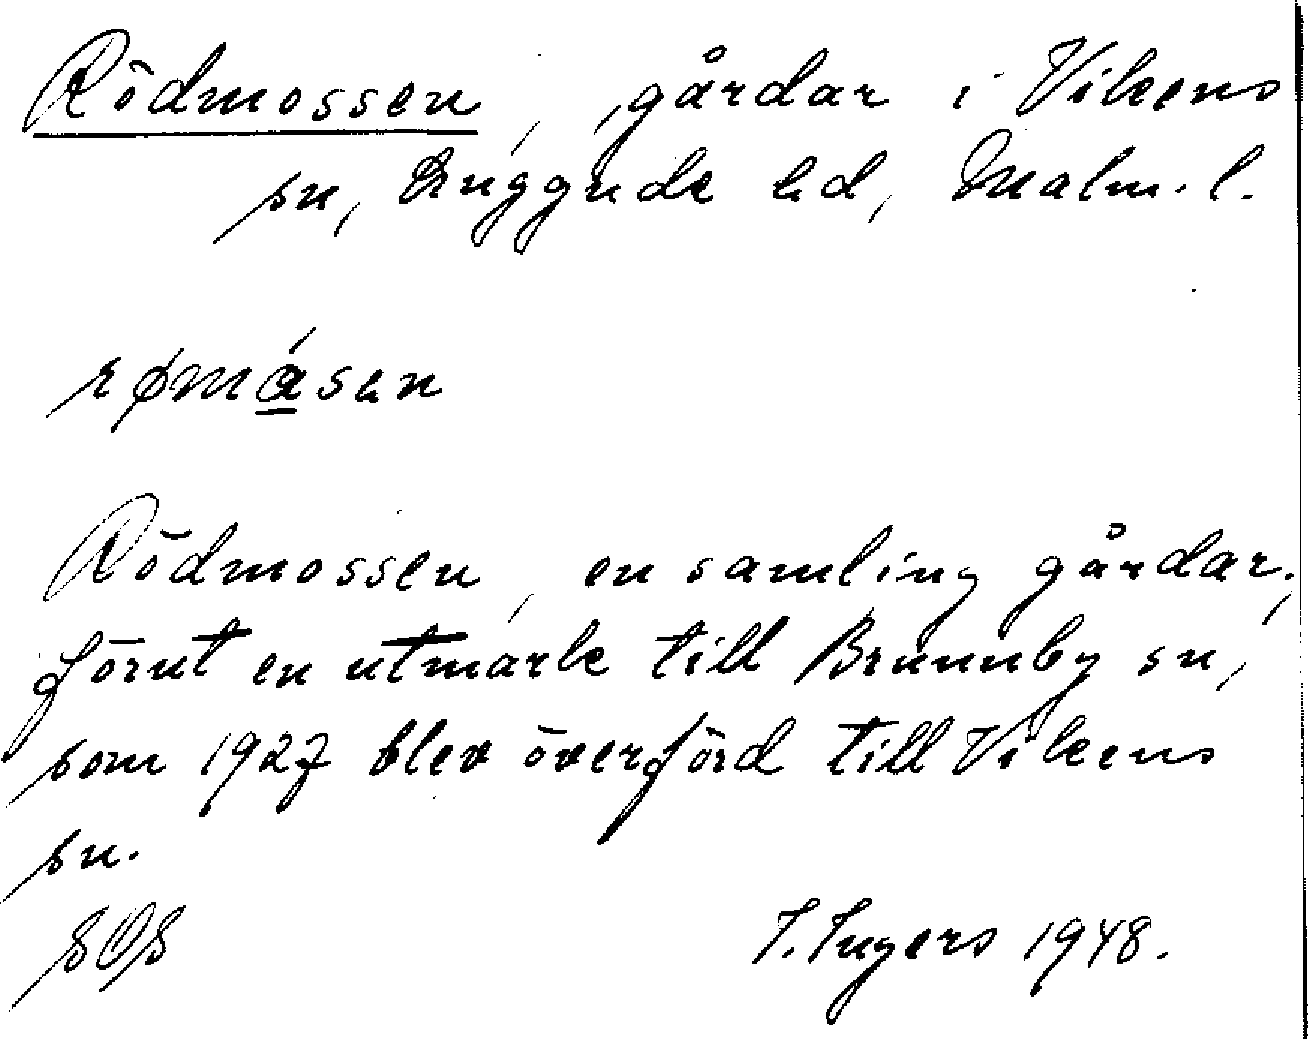 Rödmossen, gårdar i Vikens
sn, Luggude hd, Malm. l.
rømåsen
Rödmossen, en samling gårdar,
förut en utmark till Brunnby sn,
som 1927 blev överförd till Vikens
sn.
SOS I. Ingers 1948.